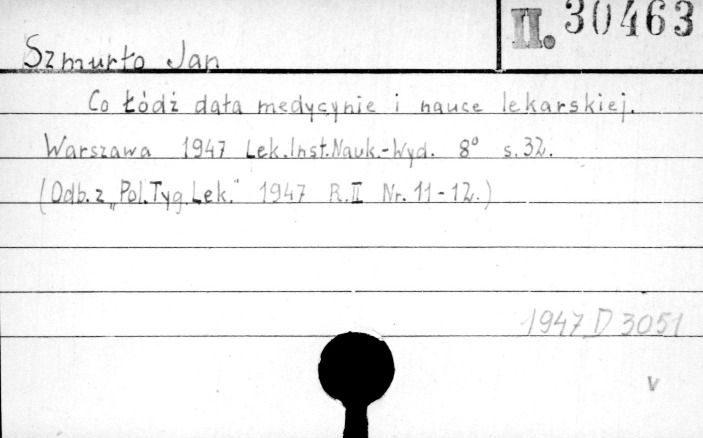 II. 30463
Szmurło Jan
Co Łódź dała medycynie i nauce lekarskiej.
Warszawa 1947 Lek.Inst.Nauk.-Wyd. 8° s.32.
(Odb.z „Pol.Tyg.Lek.” 1947 R.II Nr.11-12.)
1947 D 3051
v